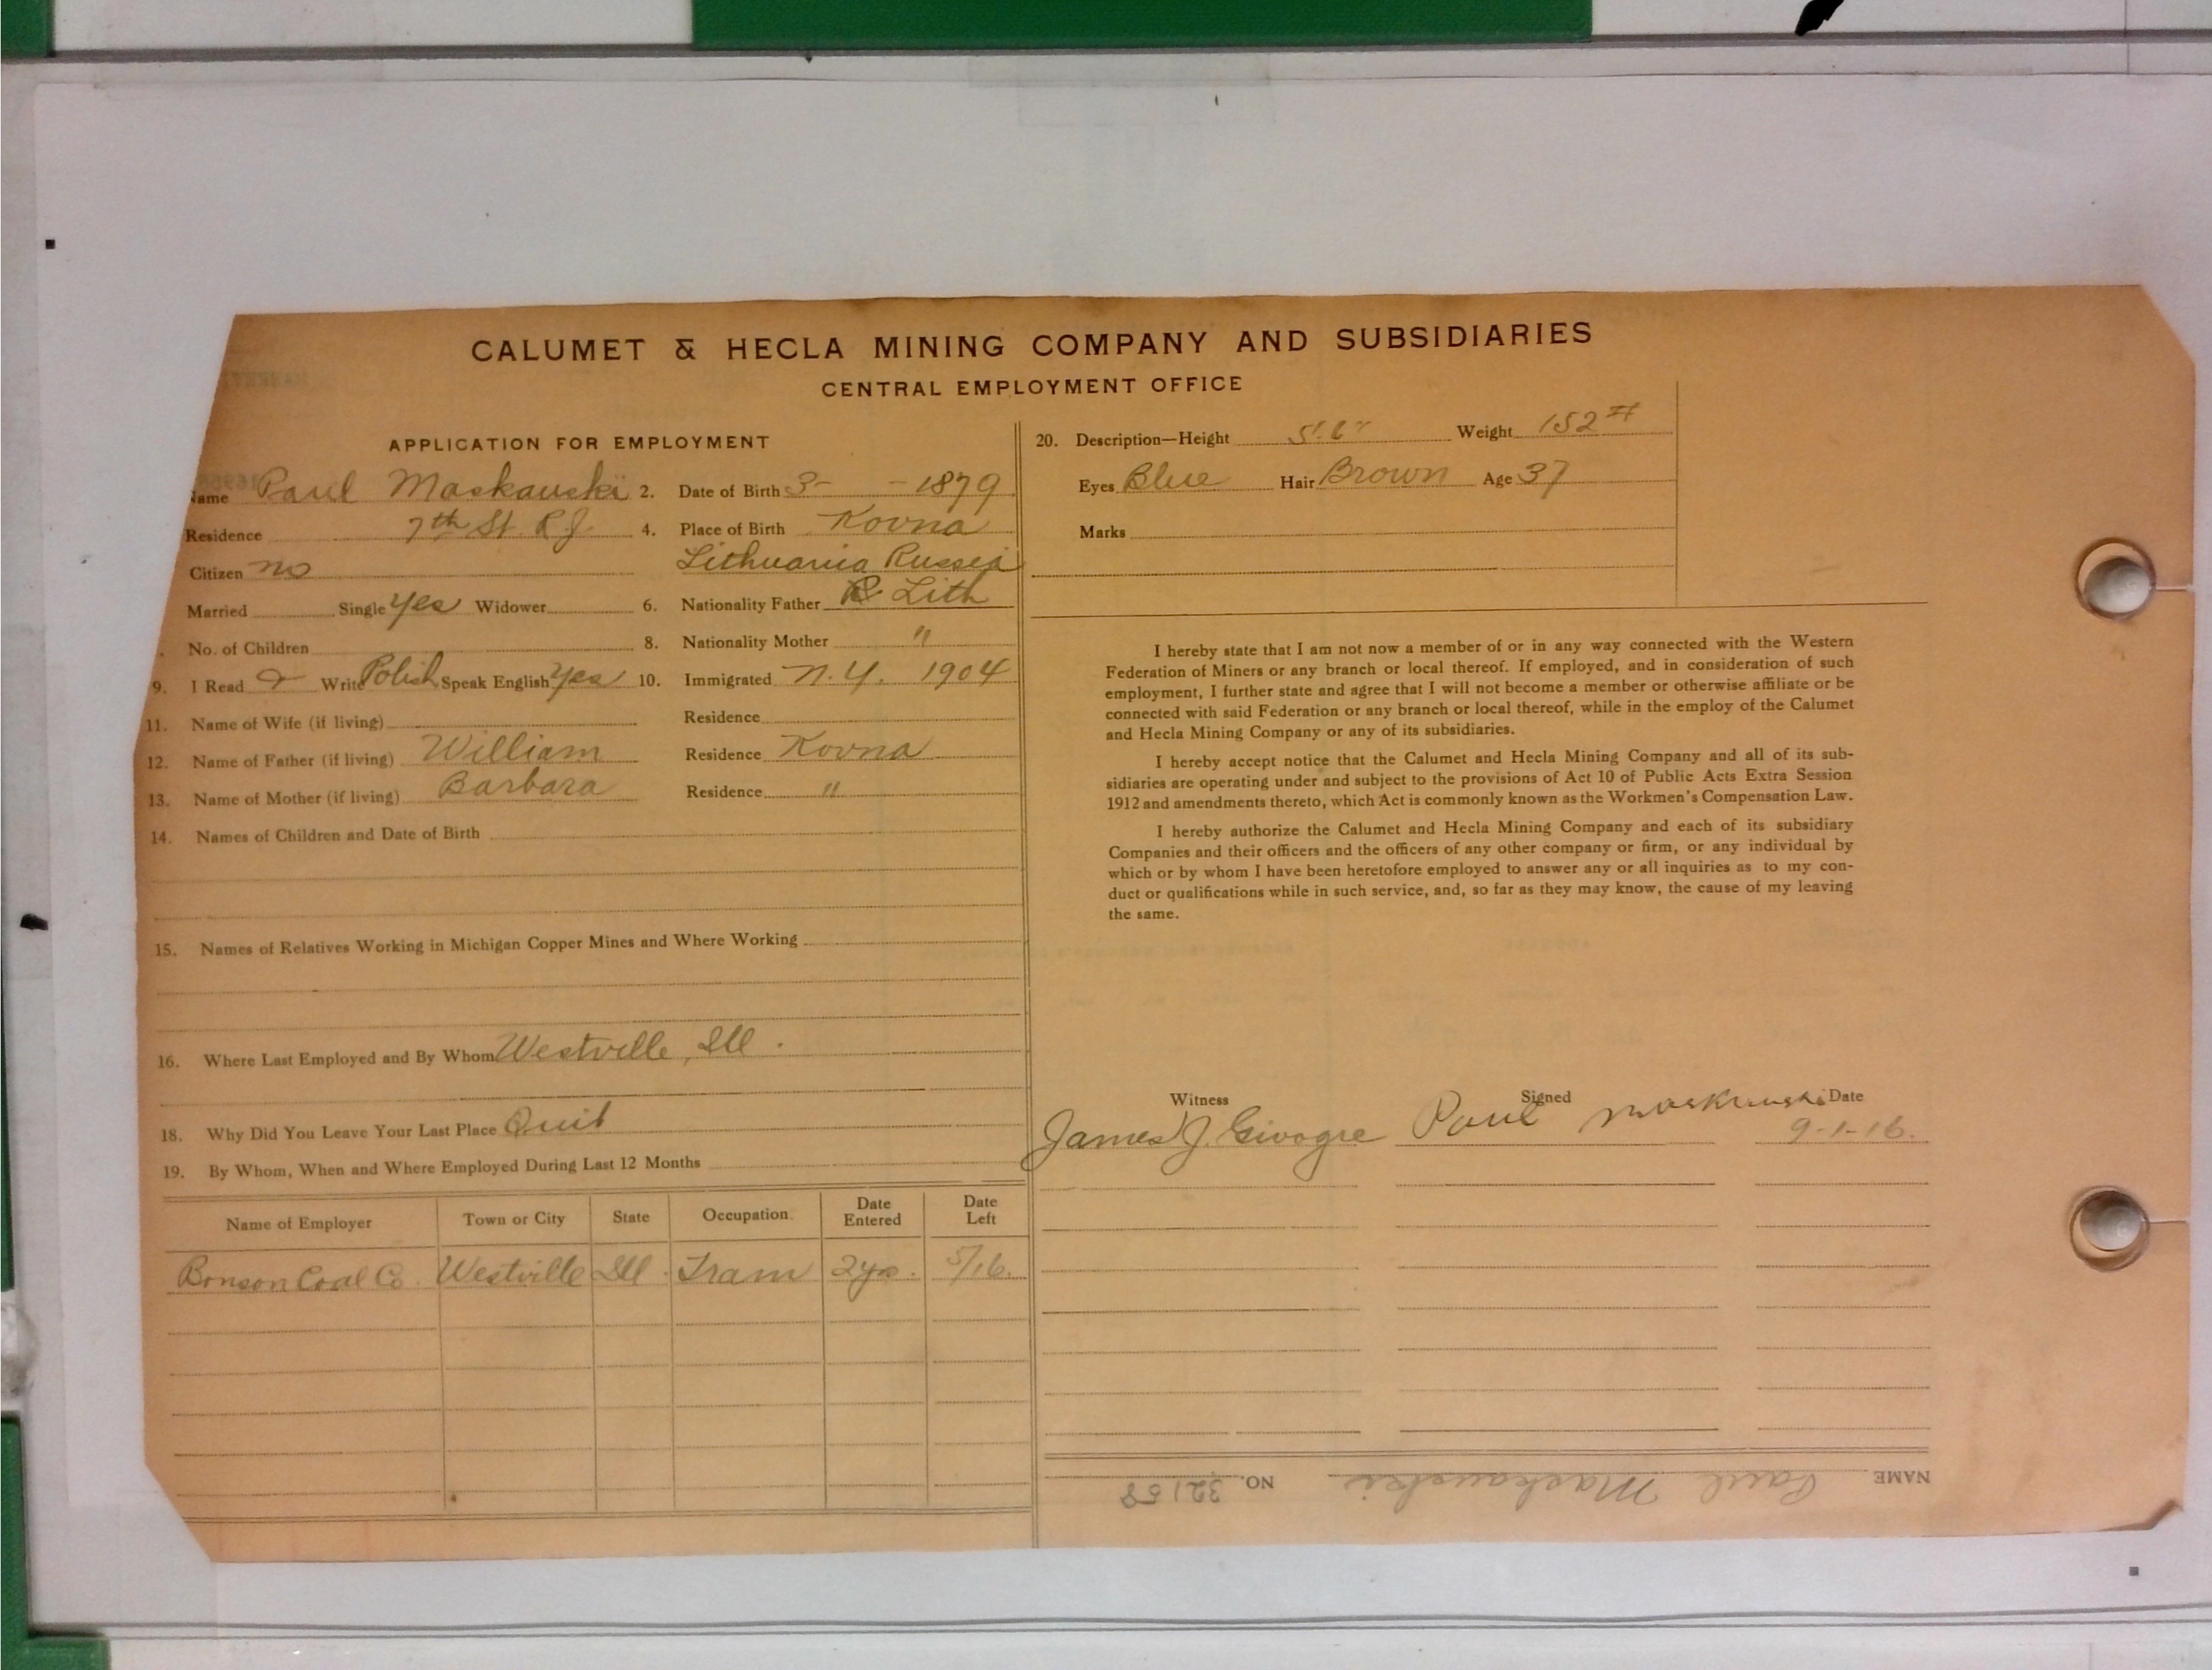 CALUMET & HECLA MINING COMPANY AND SUBSIDIARIES
CENTRAL EMPLOYMENT OFFICE
APPLICATION FOR EMPLOYMENT
Name Paul Maskauski 2. Date of Birth 3- -1879
Residence 7th St. R.J. 4. Place of Birth Kovna
Citizen no Lithuania Russia
Married Single Yes Widower 6. Nationality Father Lith
No. of Children 8. Nationality Mother "
9. I Read & Write Polish Speak English Yes 10. Immigrated N.Y. 1904
11. Name of Wife (if living) Residence
12. Name of Father (if living) William Residence Kovna
13. Name of Mother (if living) Barbara Residence "
14. Names of Children and Date of Birth
15. Names of Relatives Working in Michigan Copper Mines and Where Working
16. Where Last Employed and By Whom Westville, Ill.
18. Why Did You Leave Your Last Place Quit
19. By Whom, When and Where Employed During Last 12 Months
Name of Employer Town or City State Occupation Date Entered Date Left
Bonson Coal Co. Westville Ill. Tram 2 yrs. 5/16.
20. Description—Height 5'.6" Weight 152#
Eyes Blue Hair Brown Age 37
Marks
I hereby state that I am not now a member of or in any way connected with the Western
Federation of Miners or any branch or local thereof. If employed, and in consideration of such
employment, I further state and agree that I will not become a member or otherwise affiliate or be
connected with said Federation or any branch or local thereof, while in the employ of the Calumet
and Hecla Mining Company or any of its subsidiaries.
I hereby accept notice that the Calumet and Hecla Mining Company and all of its sub-
sidiaries are operating under and subject to the provisions of Act 10 of Public Acts Extra Session
1912 and amendments thereto, which Act is commonly known as the Workmen's Compensation Law.
I hereby authorize the Calumet and Hecla Mining Company and each of its subsidiary
Companies and their officers and the officers of any other company or firm, or any individual by
which or by whom I have been heretofore employed to answer any or all inquiries as to my con-
duct or qualifications while in such service, and, so far as they may know, the cause of my leaving
the same.
Witness Signed Date
James J. Paul Maskauski 9-1-16.
NAME Paul Maskauski NO. 32158